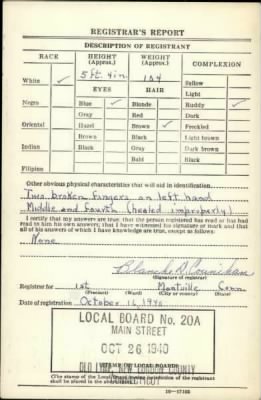 REGISTRAR'S REPORT
DESCRIPTION OF REGISTRANT
RACE HEIGHT (Approx.) WEIGHT (Approx.) COMPLEXION
White ✓ 5 ft. 4 in. 154 Sallow
EYES HAIR Light
Negro Blue ✓ Blonde Ruddy ✓
Gray Red Dark
Oriental Hazel Brown ✓ Freckled
Brown Black Light brown
Indian Black Gray Dark brown
Bald Black
Filipino
Other obvious physical characteristics that will aid in identification
Two broken fingers on left hand
Middle and fourth (healed improperly)
I certify that my answers are true; that the person registered has read or has had
read to him his own answers; that I have witnessed his signature or mark and that
all of his answers of which I have knowledge are true, except as follows:
None
Blanche D. Counihan
(Signature of registrar)
Registrar for 1st Montville Conn
(Precinct) (Ward) (City or county) (State)
Date of registration October 16, 1940
LOCAL BOARD No. 20A
MAIN STREET
OCT 26 1940
OLD LYME, NEW LONDON COUNTY
CONNECTICUT
(STAMP OF LOCAL BOARD)
(The stamp of the Local Board having jurisdiction of the registrant
shall be placed in the above space.)